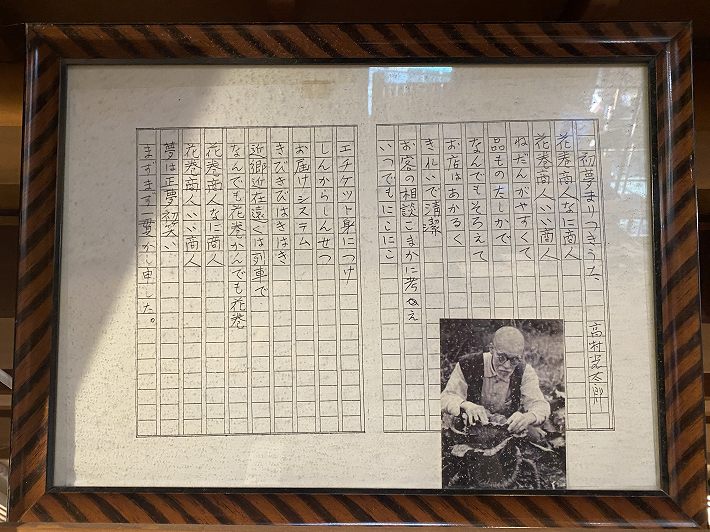 初夢まりつきうた、
高村光太郎
花巻商人なに商人
花巻商人いい商人
ねだんがやすくて
品ものたしかで
なんでもそろえて
お店はあかるく
きれいで清潔
お客の相談こまかに考え
いつでもにこにこ
エチケット身につけ
しんからしんせつ
お届けシステム
きびきびはきはき
近郷近在遠くは列車で
なんでも花巻かんでも花巻
花巻商人なに商人
花巻商人いい商人
夢は正夢初笑い
まずまず一貫かし申した。